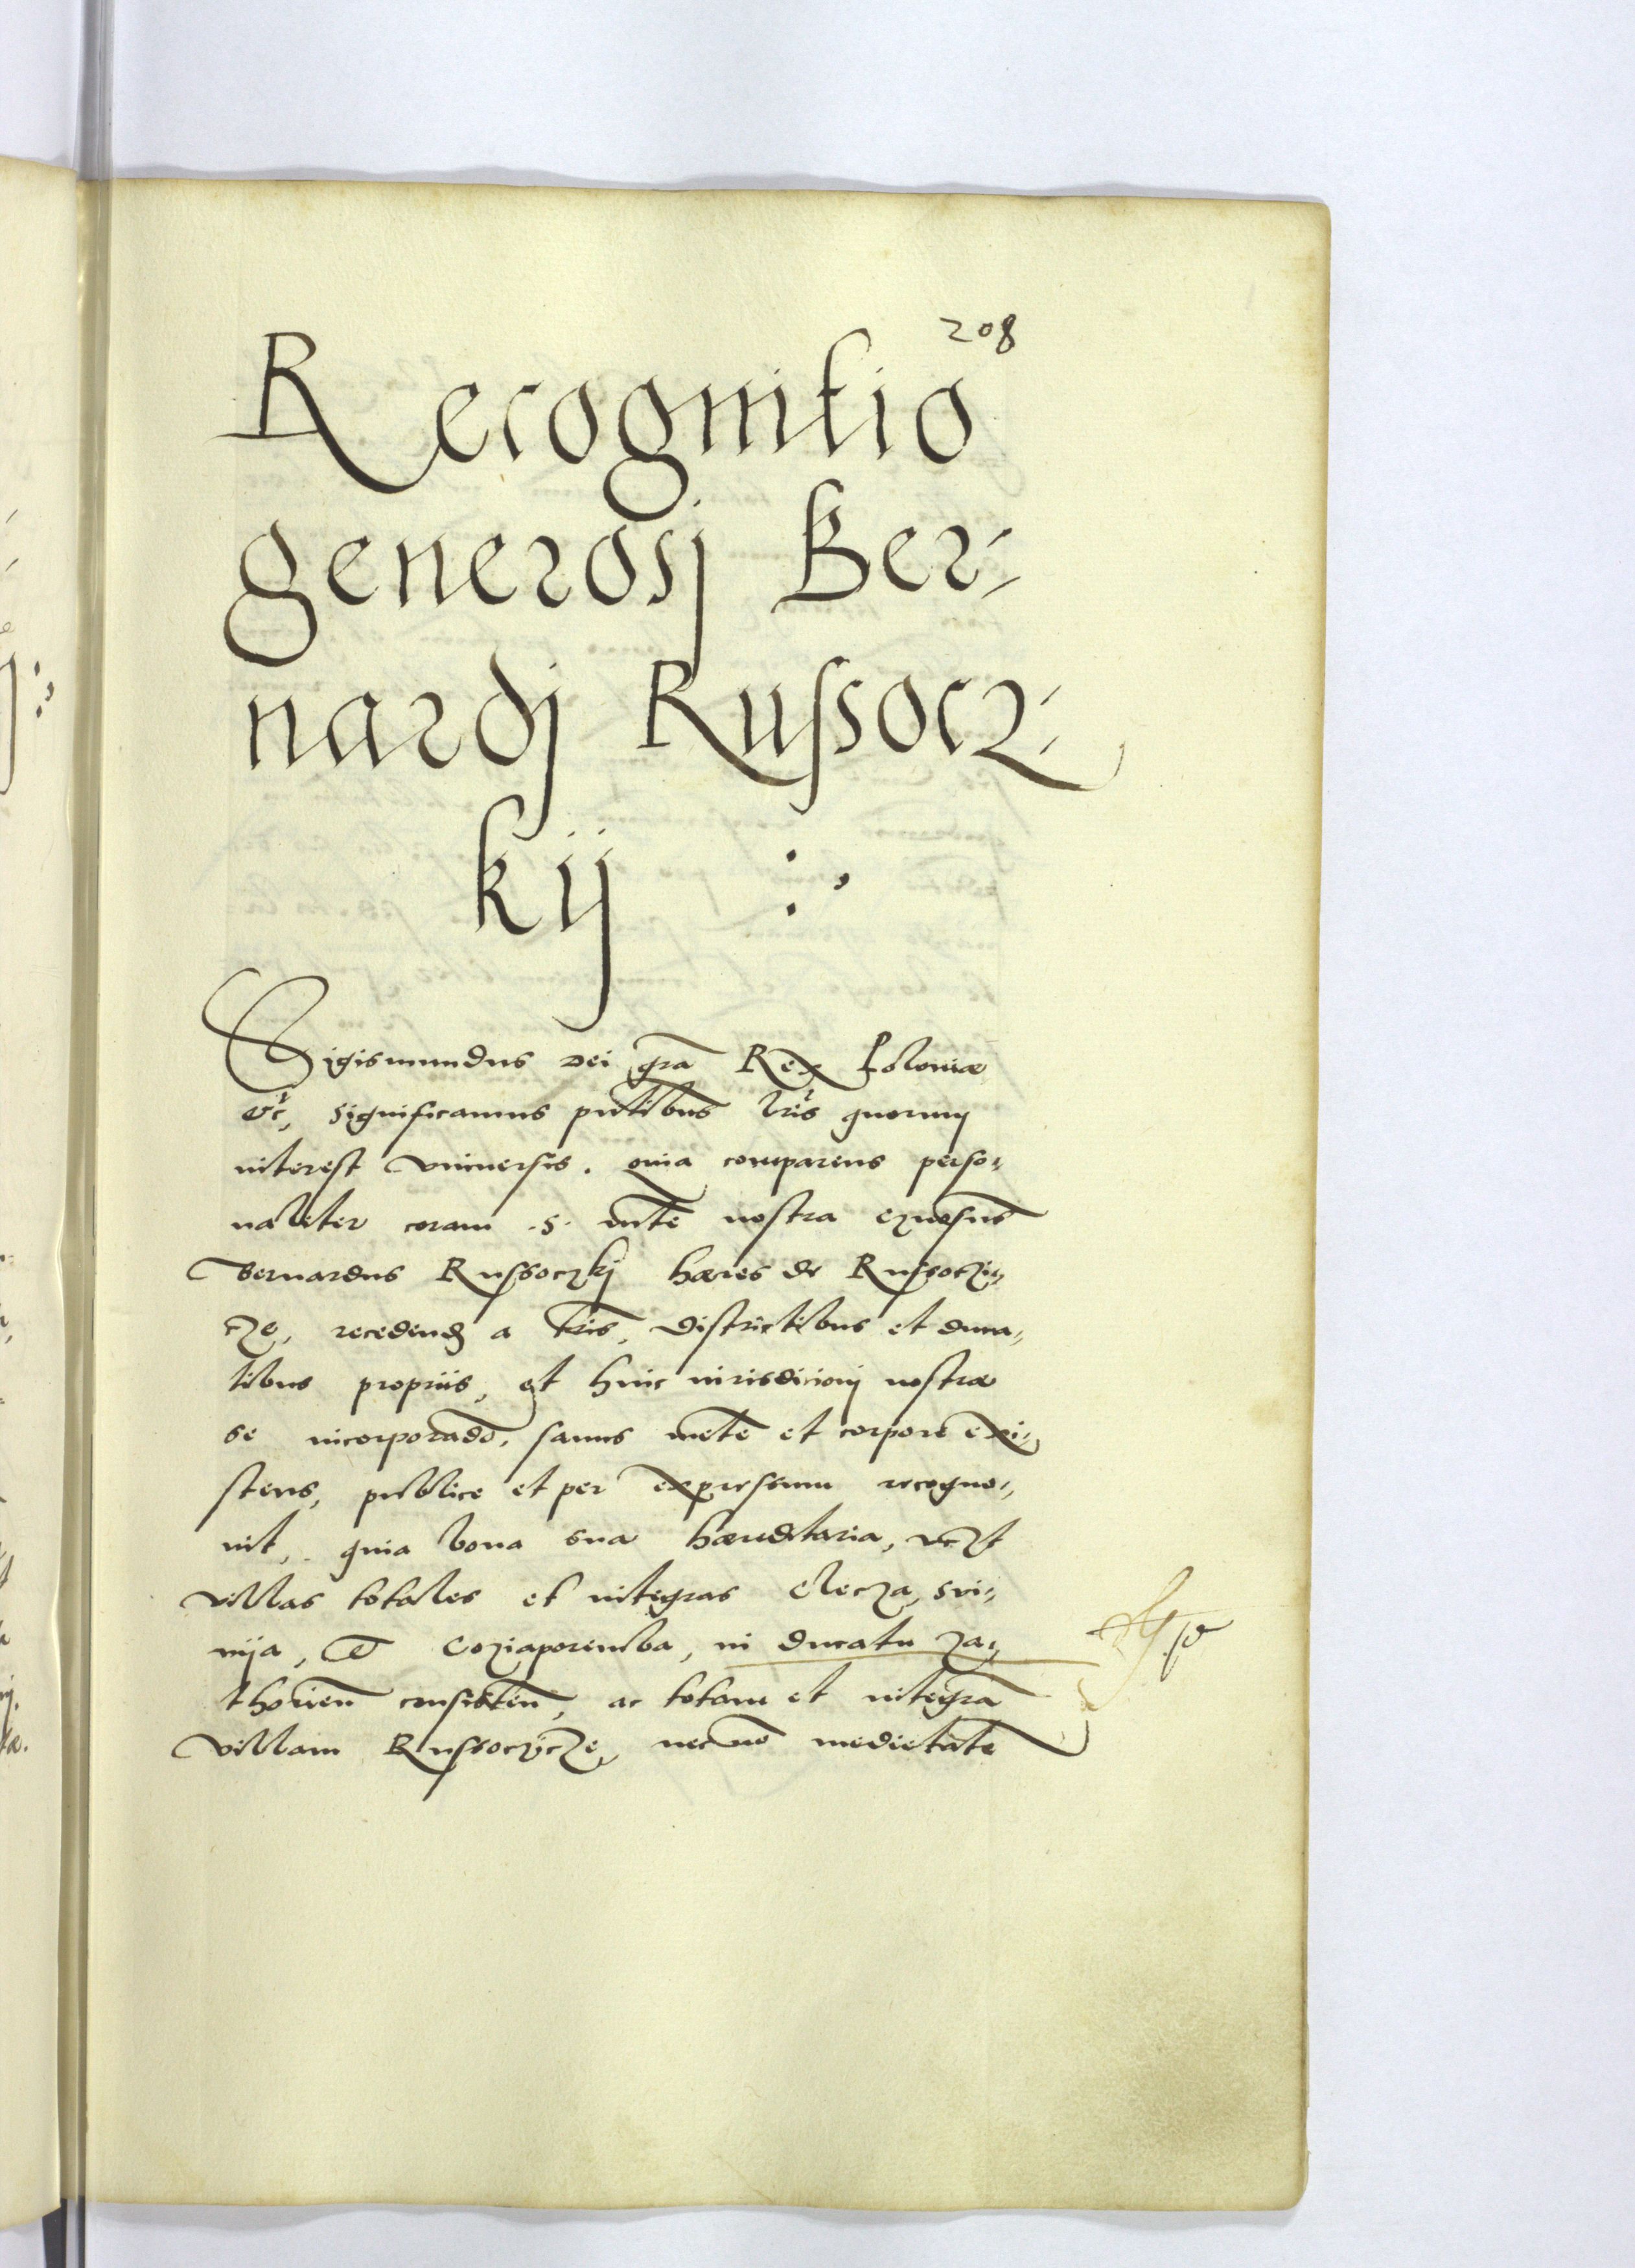 208
Recognitio
generosj Ber-
nardj Russocz-
kij :·
Sigismundus Dei gra Rex Poloniæ
etc, significamus pntibus lris quorum
interest vniuersis. quia comparens perso-
naliter coram .S. mte nostra gnosus
Bernardus Russoczkj hæres de Russoczi-
cze, recedend a tris, districtibus et duca-
tibus propriis, et huic iurisdicionj nostræ
se incorporado, sanus mete et corpore exi-
stens, publice et per expressum recogno-
uit, quia bona sua hæreditaria, vczt
villas totales et integras Clecza, Svi-
nija, et Coziaporemba, in ducatu Za-
thorien consisten, ac totam et integra
villam Russoczicze, necno medietate